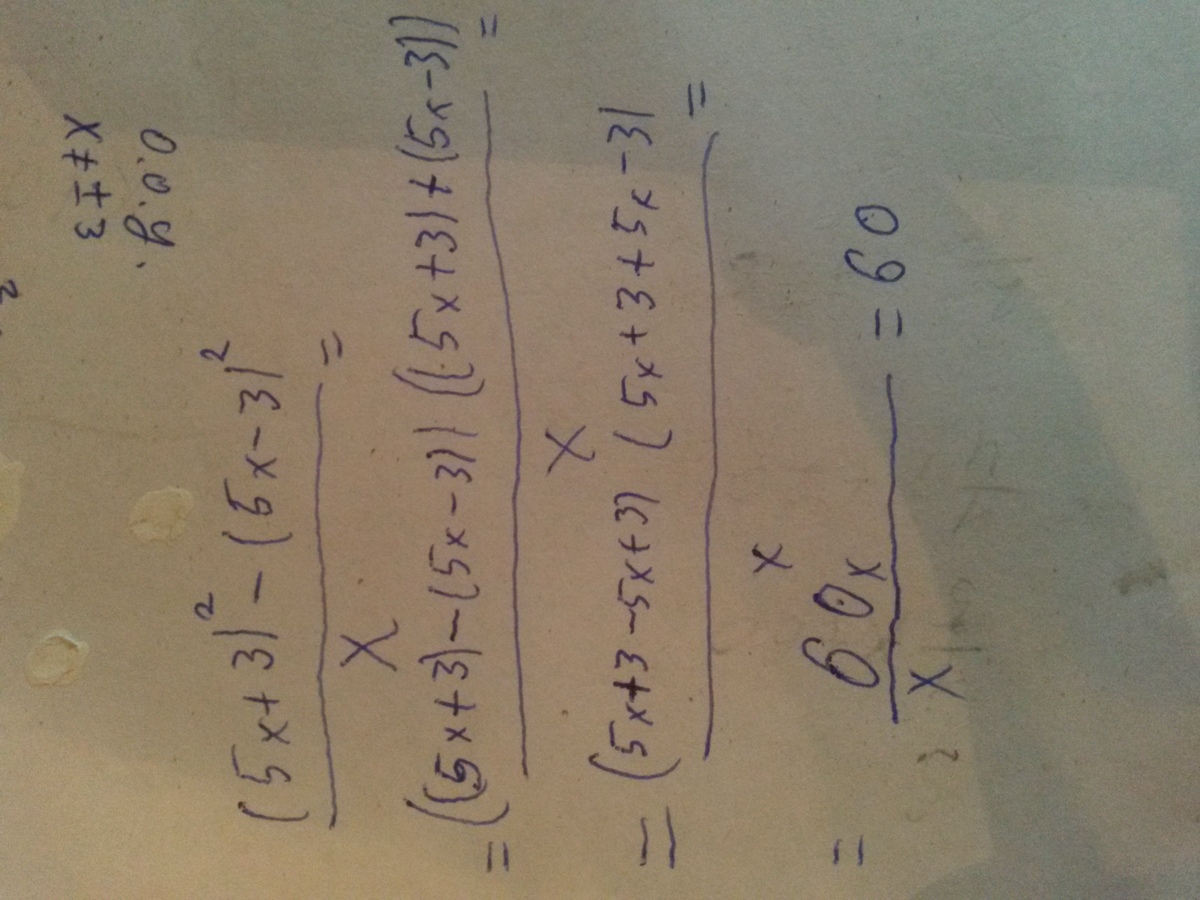 x ≠ ±3
о.о.у.
(5x+3)² - (5x-3)²
=
x
= ((5x+3)-(5x-3)) ((5x+3)+(5x-3)) =
x
= (5x+3-5x+3) (5x+3+5x-3) =
x
= 60x = 60
x